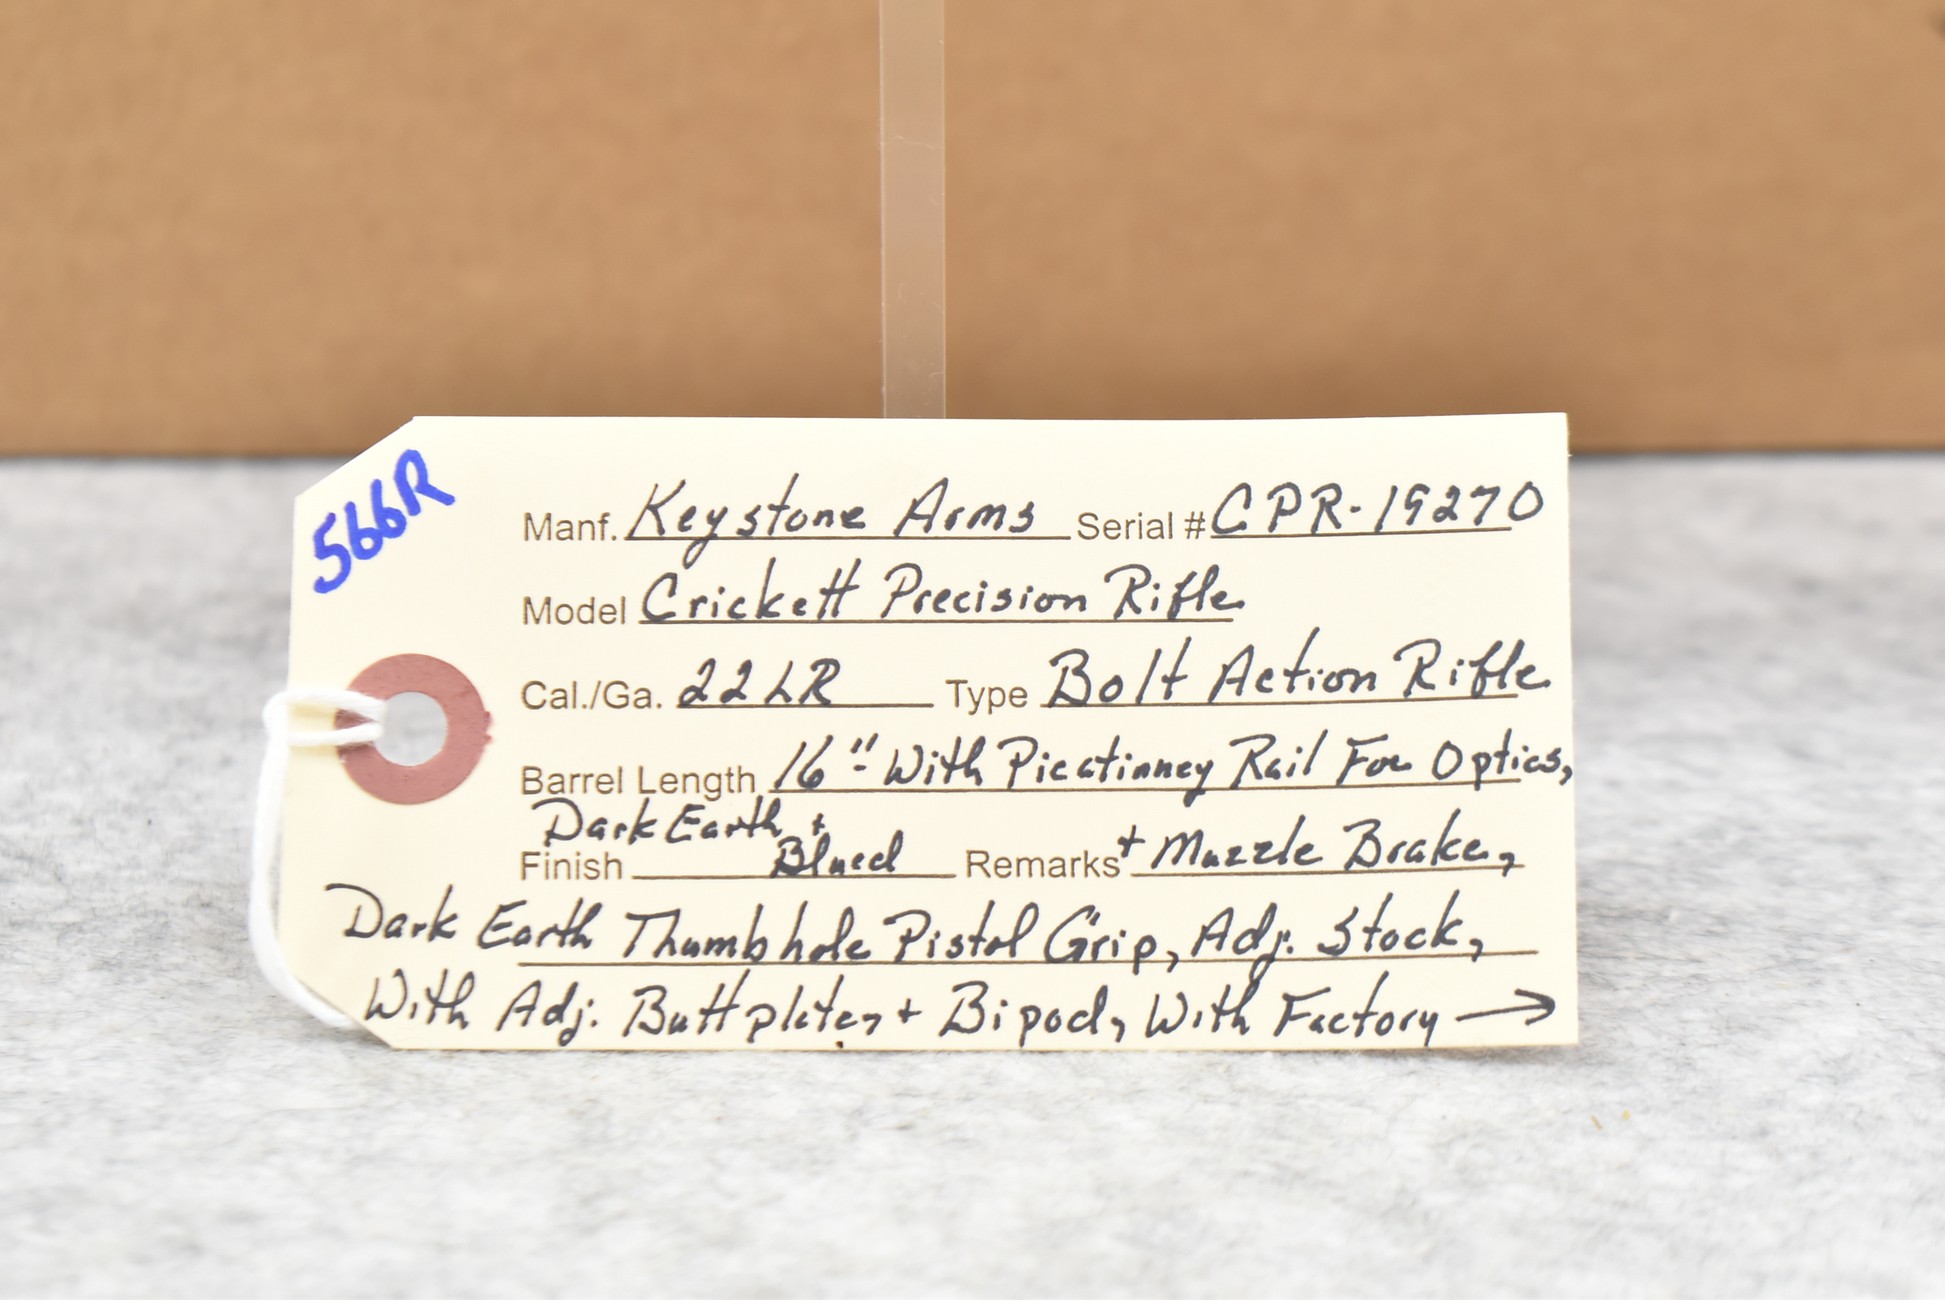 566R
Manf. Keystone Arms Serial # CPR-19270
Model Crickett Precision Rifle
Cal./Ga. 22LR Type Bolt Action Rifle
Barrel Length 16" With Picatinney Rail For Optics,
Finish Dark Earth + Blued Remarks + Muzzle Brake,
Dark Earth Thumbhole Pistol Grip, Adj. Stock,
With Adj. Buttplate, + Bipod, With Factory →